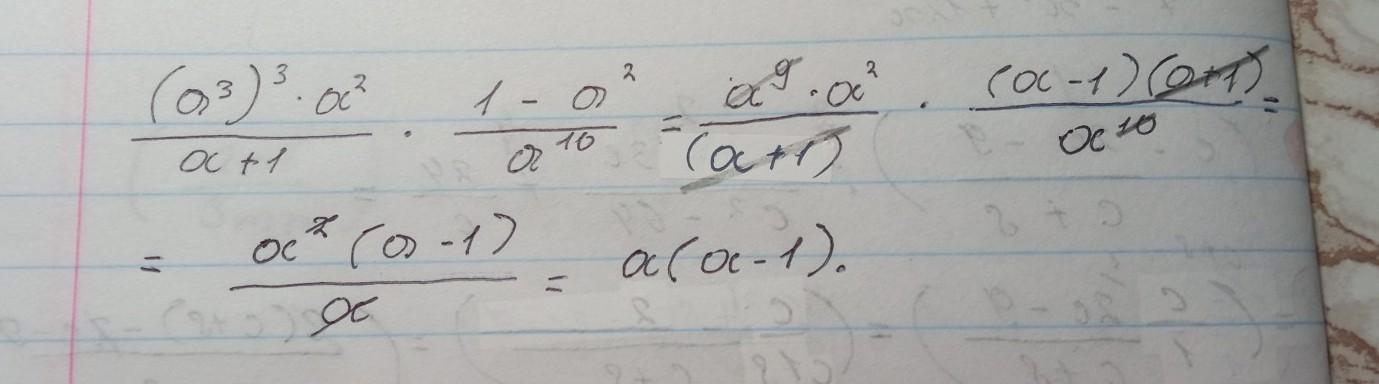 \frac{(a^3)^3 \cdot a^2}{a+1} \cdot \frac{1-a^2}{a^{10}} = \frac{a^9 \cdot a^2}{(a+1)} \cdot \frac{(a-1)(a+1)}{a^{10}} =
= \frac{a^2(a-1)}{a} = a(a-1).